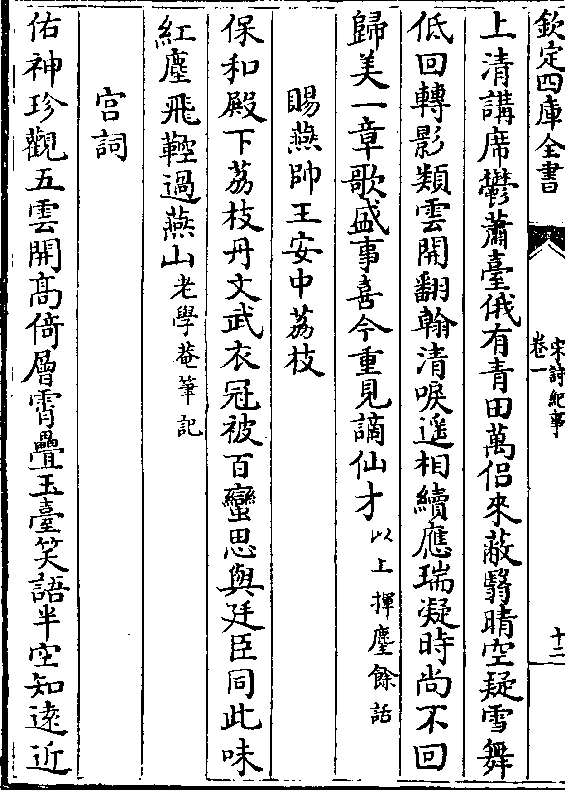 欽定四庫全書
宋詩紀事
卷一
十二
上清講席鬱蕭臺俄有青田萬侣來蔽翳晴空疑雪舞
低回轉影類雲開翻翰清唳遥相續應瑞凝時尚不回
歸美一章歌盛事喜今重見謫仙才以上揮麈餘話
賜燕帥王安中荔枝
保和殿下荔枝丹文武衣冠被百蠻思與廷臣同此味
紅塵飛鞚過燕山老學菴筆記
宫詞
佑神珍觀五雲開髙倚層霄疊玉臺笑語半空知逺近